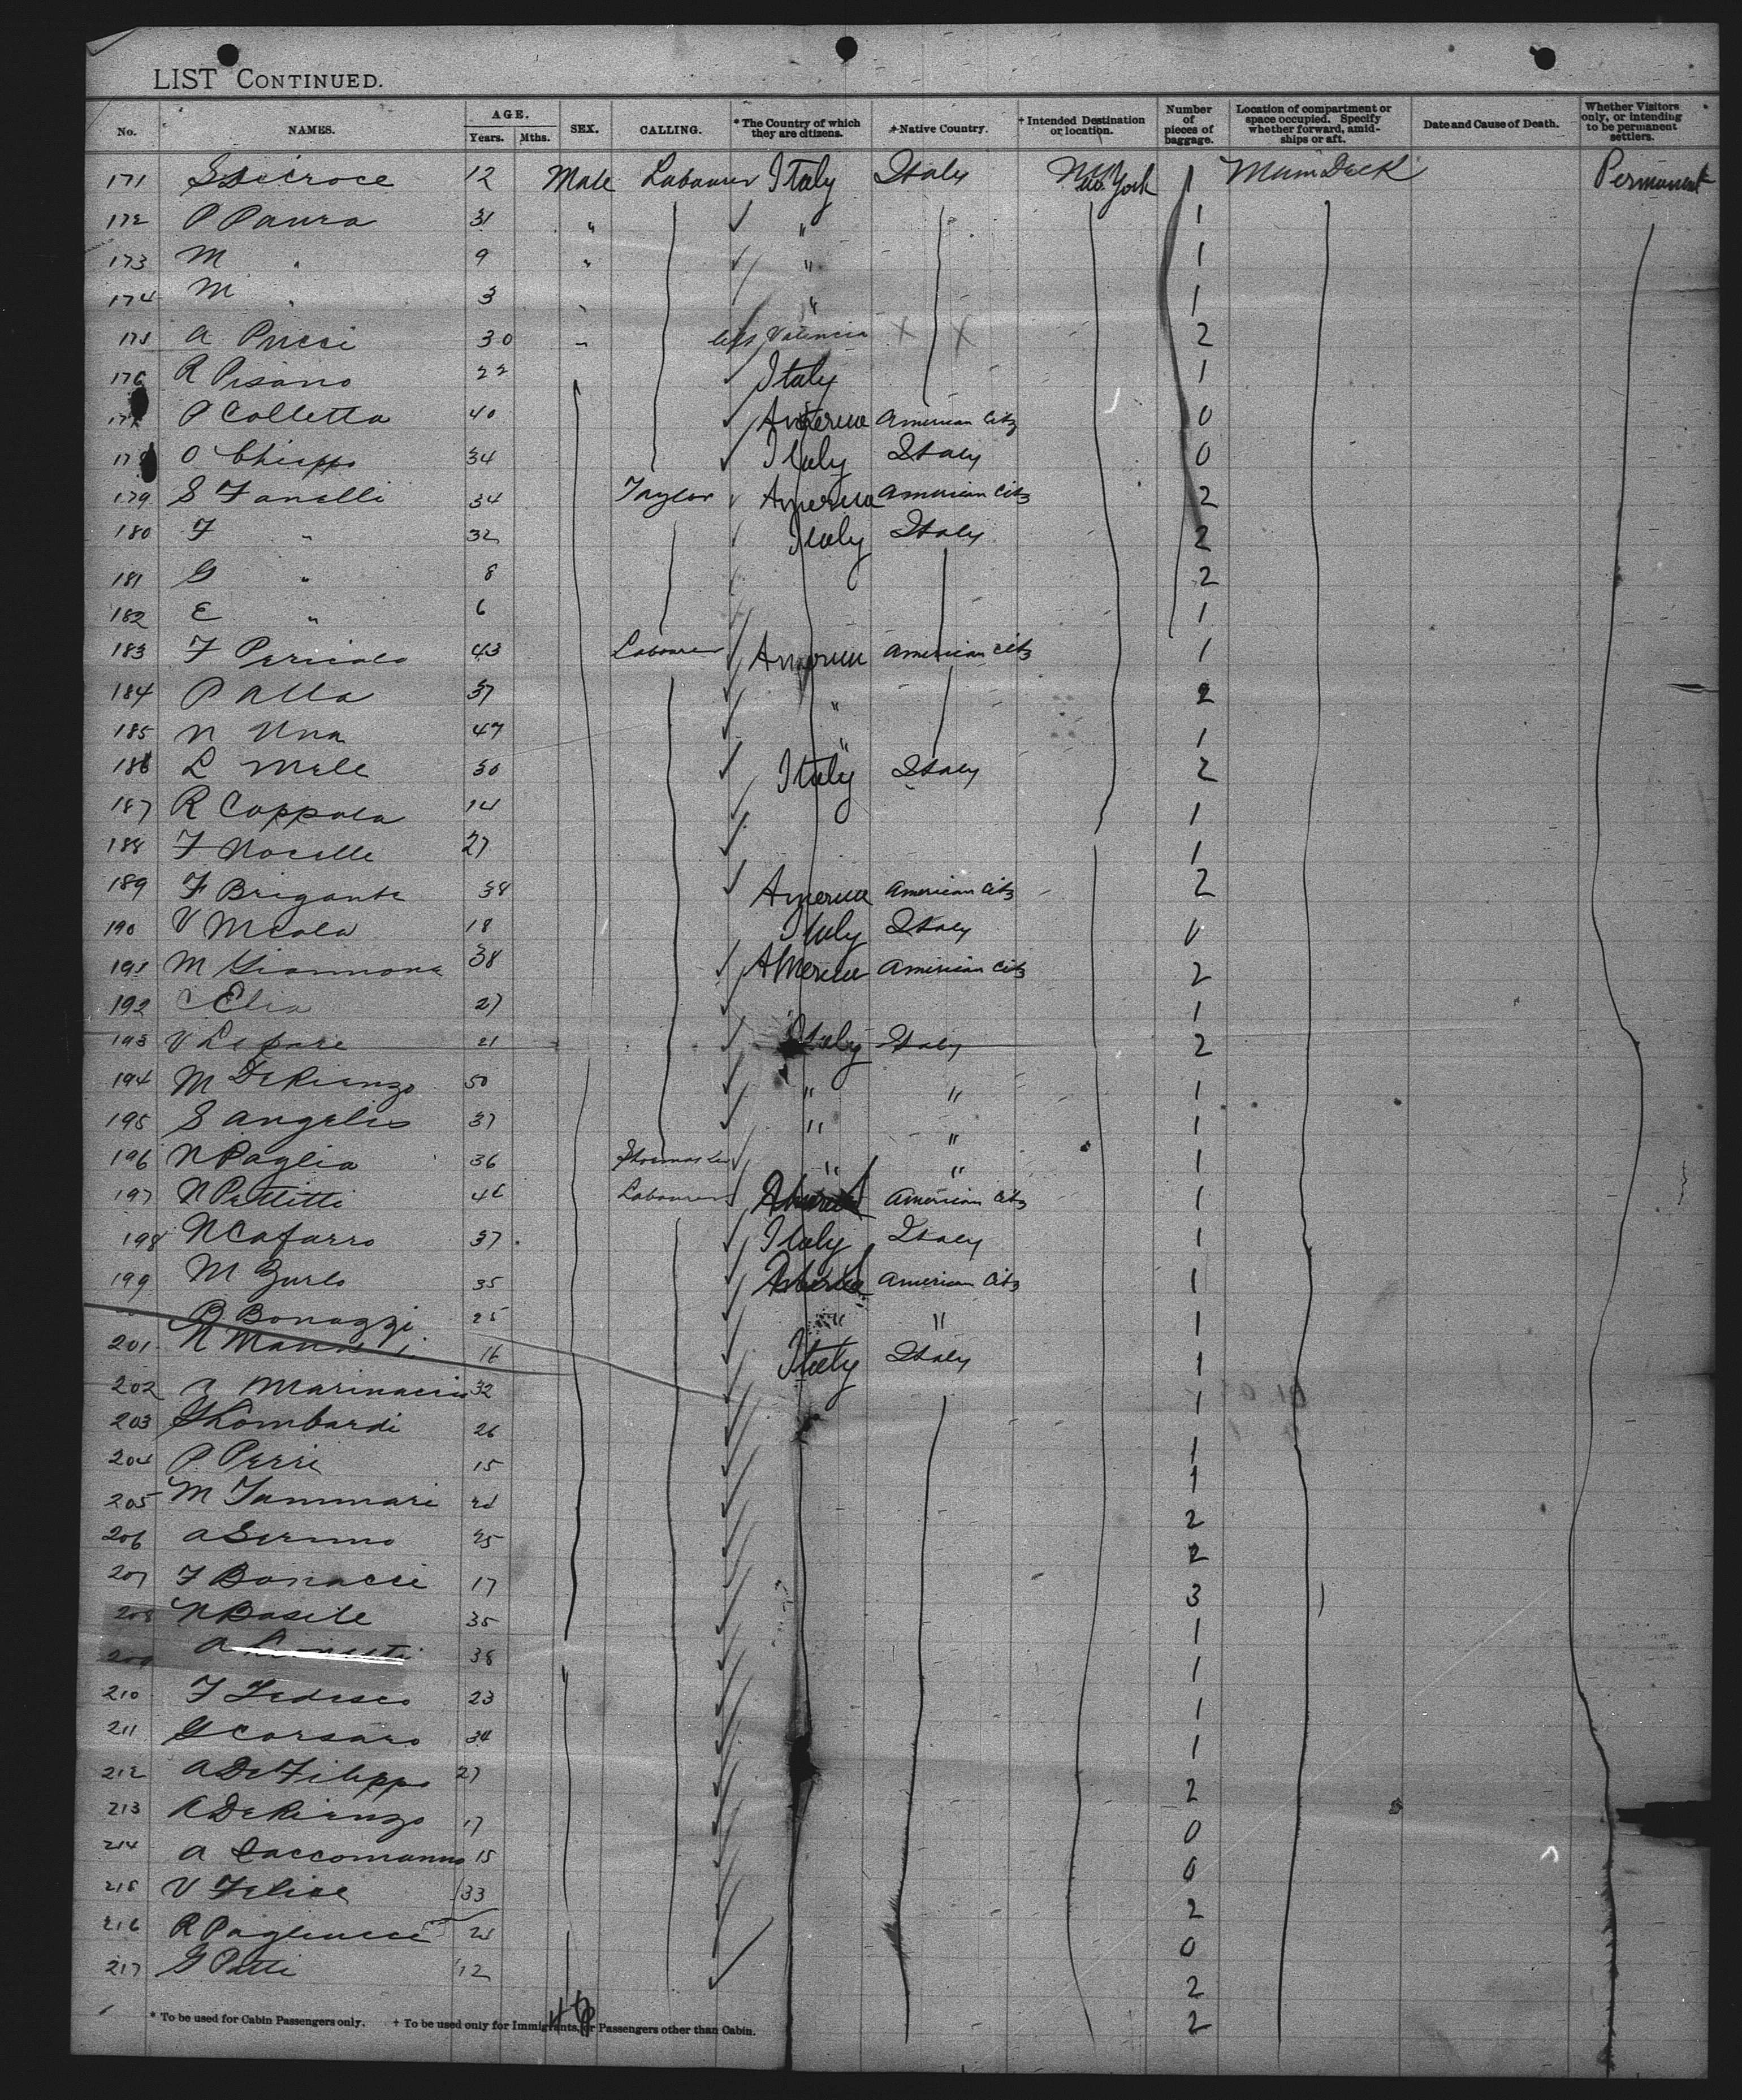 LIST CONTINUED.
No. NAMES. AGE. Years. Mths. SEX. CALLING. * The Country of which they are citizens. + Native Country. + Intended Destination or location. Number of pieces of baggage. Location of compartment or space occupied. Specify whether forward, amidships or aft. Date and Cause of Death. Whether Visitors only, or intending to be permanent settlers.
171 12 Male Labourer Italy Italy New York 1 Main Deck Permanent
172 P Paura 31 " " 1
173 M " 9 " " 1
174 M " 3 " " 1
175 A Pucci 30 " Valencia X X 2
176 R Pisano 22 Italy 1
P Colletta 40 America American Citz 0
O Chiappo 34 Italy Italy 0
179 S Fanelli 34 Taylor America American Citz 2
180 F " 32 Italy Italy 2
181 G " 8 2
182 E " 6 1
183 F Pericolo 43 Labourer America American Citz 1
184 P Alla 37 " 2
185 N Una 47 " 1
186 L Mele 30 Italy Italy 2
187 R Coppola 14 1
188 F Nocelle 27 1
189 F Brigante 38 America American Citz 2
190 V Mcola 18 Italy Italy 0
191 M Giannone 38 America American Citz 2
192 C Elia 27 1
193 V Lepare 21 Italy Italy 2
194 M DeRienzo 50 " " 1
195 S Angelis 37 " " 1
196 N Paglia 36 Shoemaker " " 1
197 N Pettitti 46 Labourer America American Citz 1
198 N Cafarro 37 Italy Italy 1
199 M Zurlo 35 America American Citz 1
B Bonazzi 25 " " 1
201 N 16 Italy Italy 1
202 Marinaccio 32 1
203 G Lombardi 26 1
204 P Perri 15 1
205 M Tammari 2
206 A Serinno 25 2
207 F Bonacci 17 3
208 N Basile 35 1
209 A 38 1
210 F Tedesco 23 1
211 G Corsaro 34 1
212 A De Filippo 27 2
213 A DeRienzo 17 0
214 A Saccomanno 15 0
215 V Felice 33 2
216 R Pagliucci 0
217 G Patti 12 2
2
* To be used for Cabin Passengers only. + To be used only for Immigrants, or Passengers other than Cabin.